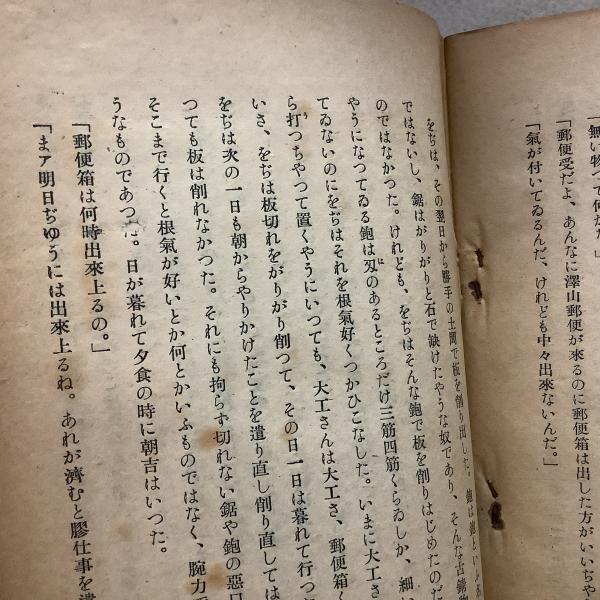 「無い物つて何かね」
「郵便受だよ、あんなに澤山郵便が來るのに郵便箱は出した方がいいぢや
「氣が付いてゐるんだ、けれども中々出來ないんだ。」
をぢは、その翌日から勝手の土間で板を削り出した。鉋は鉋といふ
ではないし、鋸はがりがりと石で缺けたやうな奴であり、そんな古鏽
のではなかつた。けれども、をぢはそんな鉋で板を削りはじめたのだ
やうになつてゐる鉋は刄のあるところだけ三筋四筋くらゐしか、細い
てゐないのにをぢはそれを根氣好くつかひこなした。いまに大工さ
ら打つちやつて置くやうにいつても、大工さんは大工さ、郵便箱く
いさ、をぢは板切れをがりがり削つて、その日一日は暮れて行つ
をぢは次の一日も朝からやりかけたことを遣り直し削り直しては
つても板は削れなかつた。それにも拘らず切れない鋸や鉋の惡口
そこまで行くと根氣が好いとか何とかいふものではなく、腕力
うなものであつた。日が暮れて夕食の時に朝吉はいつた。
「郵便箱は何時出來上るの。」
「まア明日ぢゆうには出來上るね。あれが濟むと膠仕事を